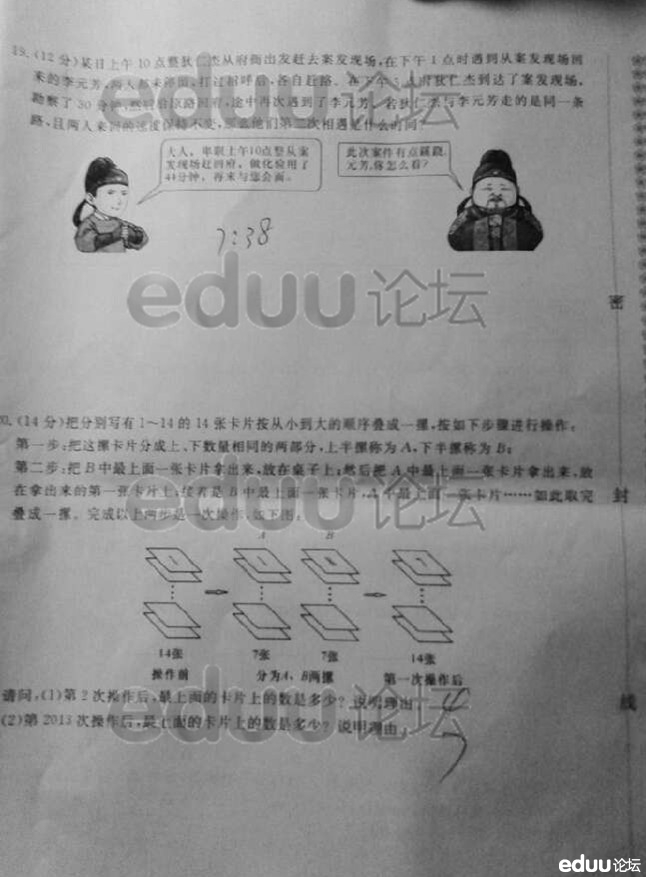 19.(12分)某日上午10点整狄仁杰从府衙出发赶去案发现场,在下午1点时遇到从案发现场回
来的李元芳,两人都未停留,打过招呼后,各自赶路。在下午
狄仁杰到达了案发现场,
勘察了30分钟,然后沿原路回府,途中再次遇到了李元芳。若狄仁杰与李元芳走的是同一条
路,且两人来回的速度保持不变,那么他们第二次相遇是什么时间?
大人,卑职上午10点整从案
发现场赶回府,做化验用了
44分钟,再来与您会面。
此次案件有点蹊跷,
元芳,你怎么看?
7:38
eduu论坛
密
20.(14分)把分别写有1~14的14张卡片按从小到大的顺序叠成一摞,按如下步骤进行操作:
第一步:把这摞卡片分成上、下数量相同的两部分,上半摞称为A,下半摞称为B;
第二步:把B中最上面一张卡片拿出来,放在桌子上;然后把A中最上面一张卡片拿出来,放
在拿出来的第一张卡片上;接着是B中最上面一张卡片,A中最上面一张卡片……如此取完
叠成一摞。完成以上两步是一次操作,如下图:
封
A B
14张 7张 7张 14张
操作前 分为A、B两摞 第一次操作后
请问:(1)第2次操作后,最上面的卡片上的数是多少?说明理由。
线
(2)第2013次操作后,最上面的卡片上的数是多少?说明理由。
eduu论坛